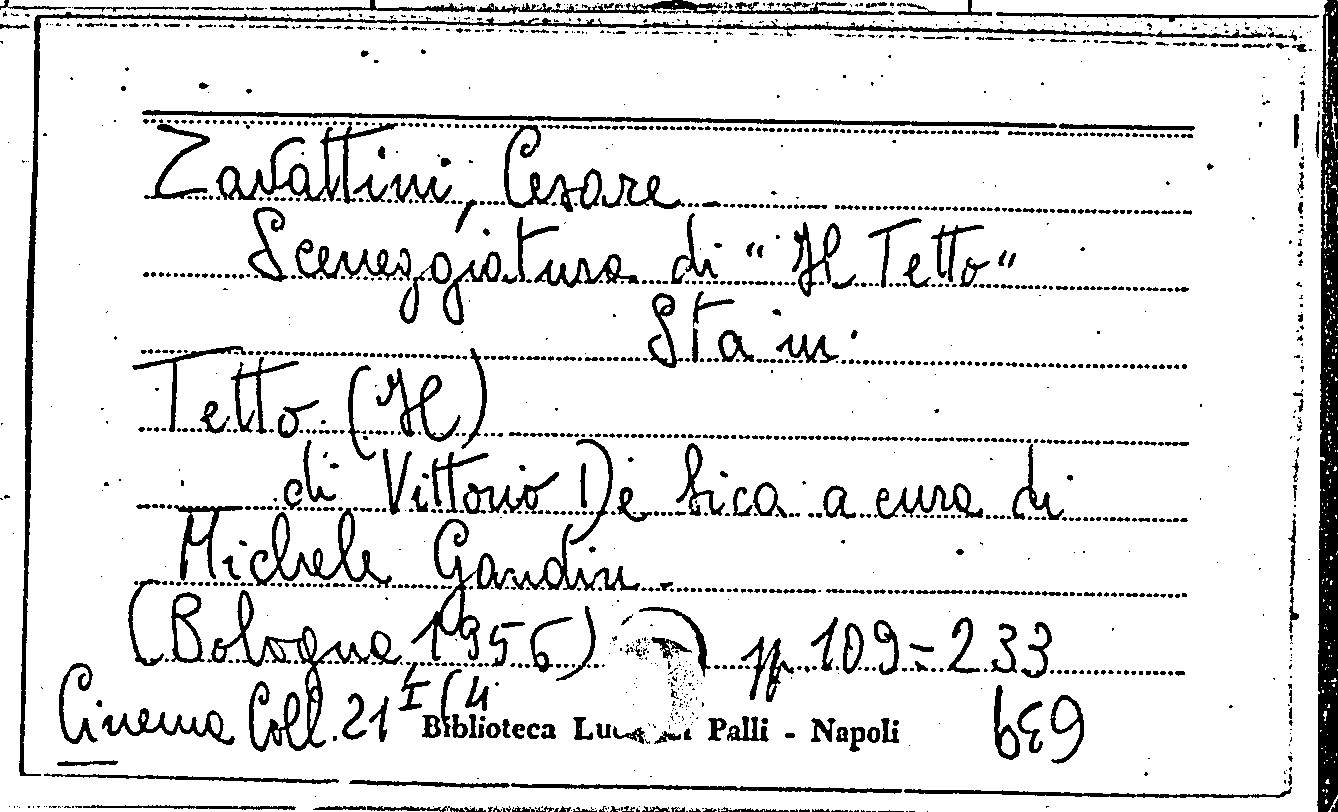 Zavattini, Cesare -
Sceneggiatura di "Il Tetto"
Sta in:
Tetto (Il)
di Vittorio De Sica a cura di
Michele Gandin -
(Bologna 1956) pp. 109-233
Cinema Coll. 21 I (4
Biblioteca Palli - Napoli